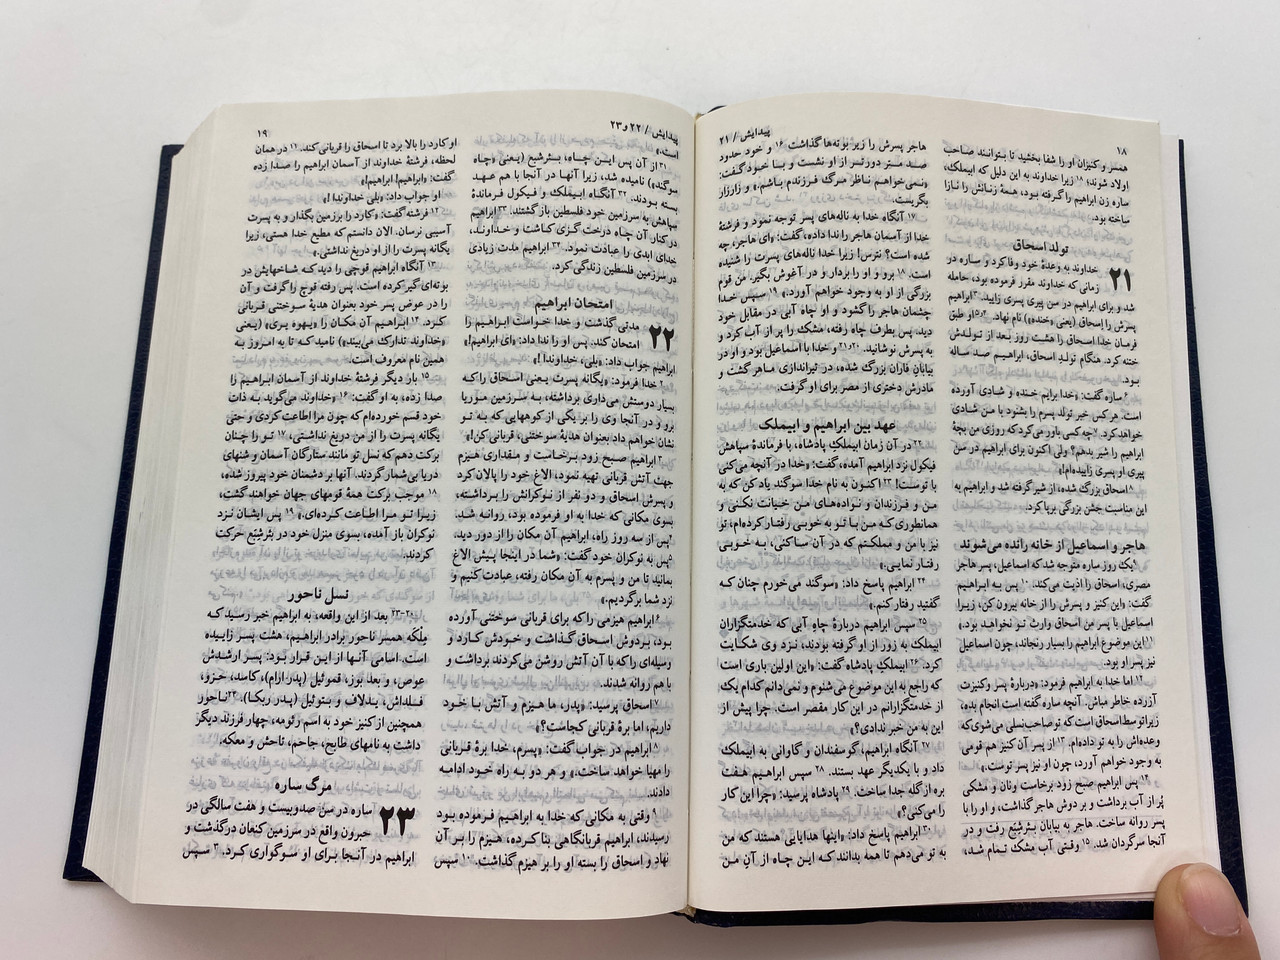 ۱۸
پیدایش / ۲۱
همسر و کنیزان او را شفا بخشید تا بتوانند صاحب
اولاد شوند؛ ۱۸ زیرا خداوند به این دلیل که ابیملک،
ساره زن ابراهیم را گرفته بود، همهٔ زنانش را نازا
ساخته بود.
تولد اسحاق
۲۱
خداوند به وعدهٔ خود وفا کرد و ساره در
زمانی که خداوند مقرر فرموده بود، حامله
شد و برای ابراهیم در سن پیری پسری زایید. ۳ ابراهیم
پسرش را اسحاق (یعنی «خنده») نام نهاد. ۴و۵ او طبق
فرمان خدا اسحاق را هشت روز بعد از تولدش
ختنه کرد. هنگام تولد اسحاق، ابراهیم صد ساله
بود.
۶ ساره گفت: «خدا برایم خنده و شادی آورده
است. هر کس خبر تولد پسرم را بشنود با من شادی
خواهد کرد. ۷ چه کسی باور می‌کرد که روزی من بچهٔ
ابراهیم را شیر بدهم؟ ولی اکنون برای ابراهیم در سن
پیری او پسری زاییده‌ام!»
۸ اسحاق بزرگ شده، از شیر گرفته شد و ابراهیم به
این مناسبت جشن بزرگی برپا کرد.
هاجر و اسماعیل از خانه رانده می‌شوند
۹ یک روز ساره متوجه شد که اسماعیل، پسر هاجر
مصری، اسحاق را اذیت می‌کند. ۱۰ پس به ابراهیم
گفت: «این کنیز و پسرش را از خانه بیرون کن، زیرا
اسماعیل با پسر من اسحاق وارث تو نخواهد بود.»
۱۱ این موضوع ابراهیم را بسیار رنجاند، چون اسماعیل
نیز پسر او بود.
۱۲ اما خدا به ابراهیم فرمود: «دربارهٔ پسر و کنیزت
آزرده خاطر مباش. آنچه ساره گفته است انجام بده،
زیرا توسط اسحاق است که تو صاحب نسلی می‌شوی که
وعده‌اش را به تو داده‌ام. ۱۳ از پسر آن کنیز هم قومی
به وجود خواهم آورد، چون او نیز پسر توست.»
۱۴ پس ابراهیم صبح زود برخاست و نان و مشکی
پُر از آب برداشت و بر دوش هاجر گذاشت، و او را با
پسر روانه ساخت. هاجر به بیابان بئرشبع رفت و در
آنجا سرگردان شد. ۱۵ وقتی آب مشک تمام شد،
هاجر پسرش را زیر بوته‌ها گذاشت ۱۶ و خود حدود
صد متر دورتر از او نشست و با خود گفت:
«نمی‌خواهم ناظر مرگ فرزندم باشم.» و زارزار
بگریست.
۱۷ آنگاه خدا به ناله‌های پسر توجه نمود و فرشتهٔ
خدا از آسمان هاجر را ندا داده، گفت: «ای هاجر، چه
شده است؟ نترس! زیرا خدا ناله‌های پسرت را شنیده
است. ۱۸ برو و او را بردار و در آغوش بگیر. من قوم
بزرگی از او به وجود خواهم آورد.» ۱۹ سپس خدا
چشمان هاجر را گشود و او چاه آبی در مقابل خود
دید. پس بطرف چاه رفته، مشک را پر از آب کرد و
به پسرش نوشانید. ۲۰و۲۱ و خدا با اسماعیل بود و او در
بیابانِ فاران بزرگ شده، در تیراندازی ماهر گشت و
مادرش دختری از مصر برای او گرفت.
عهد بین ابراهیم و ابیملک
۲۲ در آن زمان ابیملکِ پادشاه، با فرماندهٔ سپاهش
فیکول نزد ابراهیم آمده، گفت: «خدا در آنچه می‌کنی
با توست! ۲۳ اکنون به نام خدا سوگند یاد کن که به
من و فرزندان و نواده‌های من خیانت نکنی و
همانطوری که من با تو به خوبی رفتار کرده‌ام، تو
نیز با من و مملکتم که در آن ساکنی، به خوبی
رفتار نمایی.»
۲۴ ابراهیم پاسخ داد: «سوگند می‌خورم چنان که
گفتید رفتار کنم.»
۲۵ سپس ابراهیم دربارهٔ چاهِ آبی که خدمتگزاران
ابیملک به زور از او گرفته بودند، نزد وی شکایت
کرد. ۲۶ ابیملکِ پادشاه گفت: «این اولین باری است
که راجع به این موضوع می‌شنوم و نمی‌دانم کدام یک
از خدمتگزارانم در این کار مقصر است. چرا پیش از
این به من خبر ندادی؟»
۲۷ آنگاه ابراهیم، گوسفندان و گاوانی به ابیملک
داد و با یکدیگر عهد بستند. ۲۸ سپس ابراهیم هفت
بره از گله جدا ساخت. ۲۹ پادشاه پرسید: «چرا این کار
را می‌کنی؟»
۳۰ ابراهیم پاسخ داد: «اینها هدایایی هستند که من
به تو می‌دهم تا همه بدانند که این چاه از آنِ من
پیدایش / ۲۲ و ۲۳
۱۹
است.»
۳۱ از آن پس این چاه، بئرشبع (یعنی «چاه
سوگند») نامیده شد، زیرا آنها در آنجا با هم عهد
بسته بودند. ۳۲ آنگاه ابیملک و فیکول فرماندهٔ
سپاهش به سرزمین خود فلسطین بازگشتند. ۳۳ ابراهیم
در کنار آن چاه درخت گزی کاشت و خداوند،
خدای ابدی را عبادت نمود. ۳۴ ابراهیم مدت زیادی
در سرزمین فلسطین زندگی کرد.
امتحان ابراهیم
۲۲
مدتی گذشت و خدا خواست ابراهیم را
امتحان کند. پس او را ندا داد: «ای ابراهیم!»
ابراهیم جواب داد: «بلی، خداوندا!»
۲ خدا فرمود: «یگانه پسرت یعنی اسحاق را که
بسیار دوستش می‌داری برداشته، به سرزمین موریا
برو و در آنجا وی را بر یکی از کوههایی که به تو
نشان خواهم داد بعنوان هدیهٔ سوختنی، قربانی کن!»
۳ ابراهیم صبح زود برخاست و مقداری هیزم
جهت آتش قربانی تهیه نمود، الاغ خود را پالان کرد
و پسرش اسحاق و دو نفر از نوکرانش را برداشته،
بسوی مکانی که خدا به او فرموده بود، روانه شد.
۴ پس از سه روز راه، ابراهیم آن مکان را از دور دید.
۵ پس به نوکران خود گفت: «شما در اینجا پیش الاغ
بمانید تا من و پسرم به آن مکان رفته، عبادت کنیم و
نزد شما برگردیم.»
۶ ابراهیم هیزمی را که برای قربانی سوختنی آورده
بود، بر دوش اسحاق گذاشت و خودش کارد و
وسیله‌ای را که با آن آتش روشن می‌کردند برداشت و
با هم روانه شدند.
۷ اسحاق پرسید: «پدر، ما هیزم و آتش با خود
داریم، اما برهٔ قربانی کجاست؟»
۸ ابراهیم در جواب گفت: «پسرم، خدا برهٔ قربانی
را مهیا خواهد ساخت.» و هر دو به راه خود ادامه
دادند.
۹ وقتی به مکانی که خدا به ابراهیم فرموده بود
رسیدند، ابراهیم قربانگاهی بنا کرده، هیزم را بر آن
نهاد و اسحاق را بسته او را بر هیزم گذاشت. ۱۰ سپس
او کارد را بالا برد تا اسحاق را قربانی کند. ۱۱ در همان
لحظه، فرشتهٔ خداوند از آسمان ابراهیم را صدا زده
گفت: «ابراهیم! ابراهیم!»
او جواب داد: «بلی خداوندا!»
۱۲ فرشته گفت: «کارد را بر زمین بگذار و به پسرت
آسیبی نرسان. الان دانستم که مطیع خدا هستی، زیرا
یگانه پسرت را از او دریغ نداشتی.»
۱۳ آنگاه ابراهیم قوچی را دید که شاخهایش در
بوته‌ای گیر کرده است. پس رفته قوچ را گرفت و آن
را در عوض پسر خود بعنوان هدیهٔ سوختنی قربانی
کرد. ۱۴ ابراهیم آن مکان را «یهوه یری» (یعنی
«خداوند تدارک می‌بیند») نامید که تا به امروز به
همین نام معروف است.
۱۵ بار دیگر فرشتهٔ خداوند از آسمان ابراهیم را
صدا زده، به او گفت: ۱۶ «خداوند می‌گوید به ذات
خود قسم خورده‌ام که چون مرا اطاعت کردی و حتی
یگانه پسرت را از من دریغ نداشتی، ۱۷ تو را چنان
برکت دهم که نسل تو مانند ستارگان آسمان و شنهای
دریا بی‌شمار گردند. آنها بر دشمنان خود پیروز شده،
۱۸ موجب برکت همهٔ قومهای جهان خواهند گشت،
زیرا تو مرا اطاعت کرده‌ای.» ۱۹ پس ایشان نزد
نوکران باز آمده، بسوی منزل خود در بئرشِبع حرکت
کردند.
نسل ناحور
۲۰-۲۳ بعد از این واقعه، به ابراهیم خبر رسید که
مِلْکه همسر ناحور برادر ابراهیم، هشت پسر زاییده
است. اسامی آنها از این قرار بود: پسر ارشدش
عوص، و بعد بوز، قموئیل (پدر ارام)، کاسد، حزو،
فلداش، یدلاف و بتوئیل (پدر ربکا). ۲۴ ناحور
همچنین از کنیز خود به اسم رئومه، چهار فرزند دیگر
داشت به نامهای طابح، جاحم، تاحش و معکه.
مرگ ساره
۲۳
ساره در سن صد و بیست و هفت سالگی در
حبرون واقع در سرزمین کنعان درگذشت و
ابراهیم در آنجا برای او سوگواری کرد. ۳ سپس